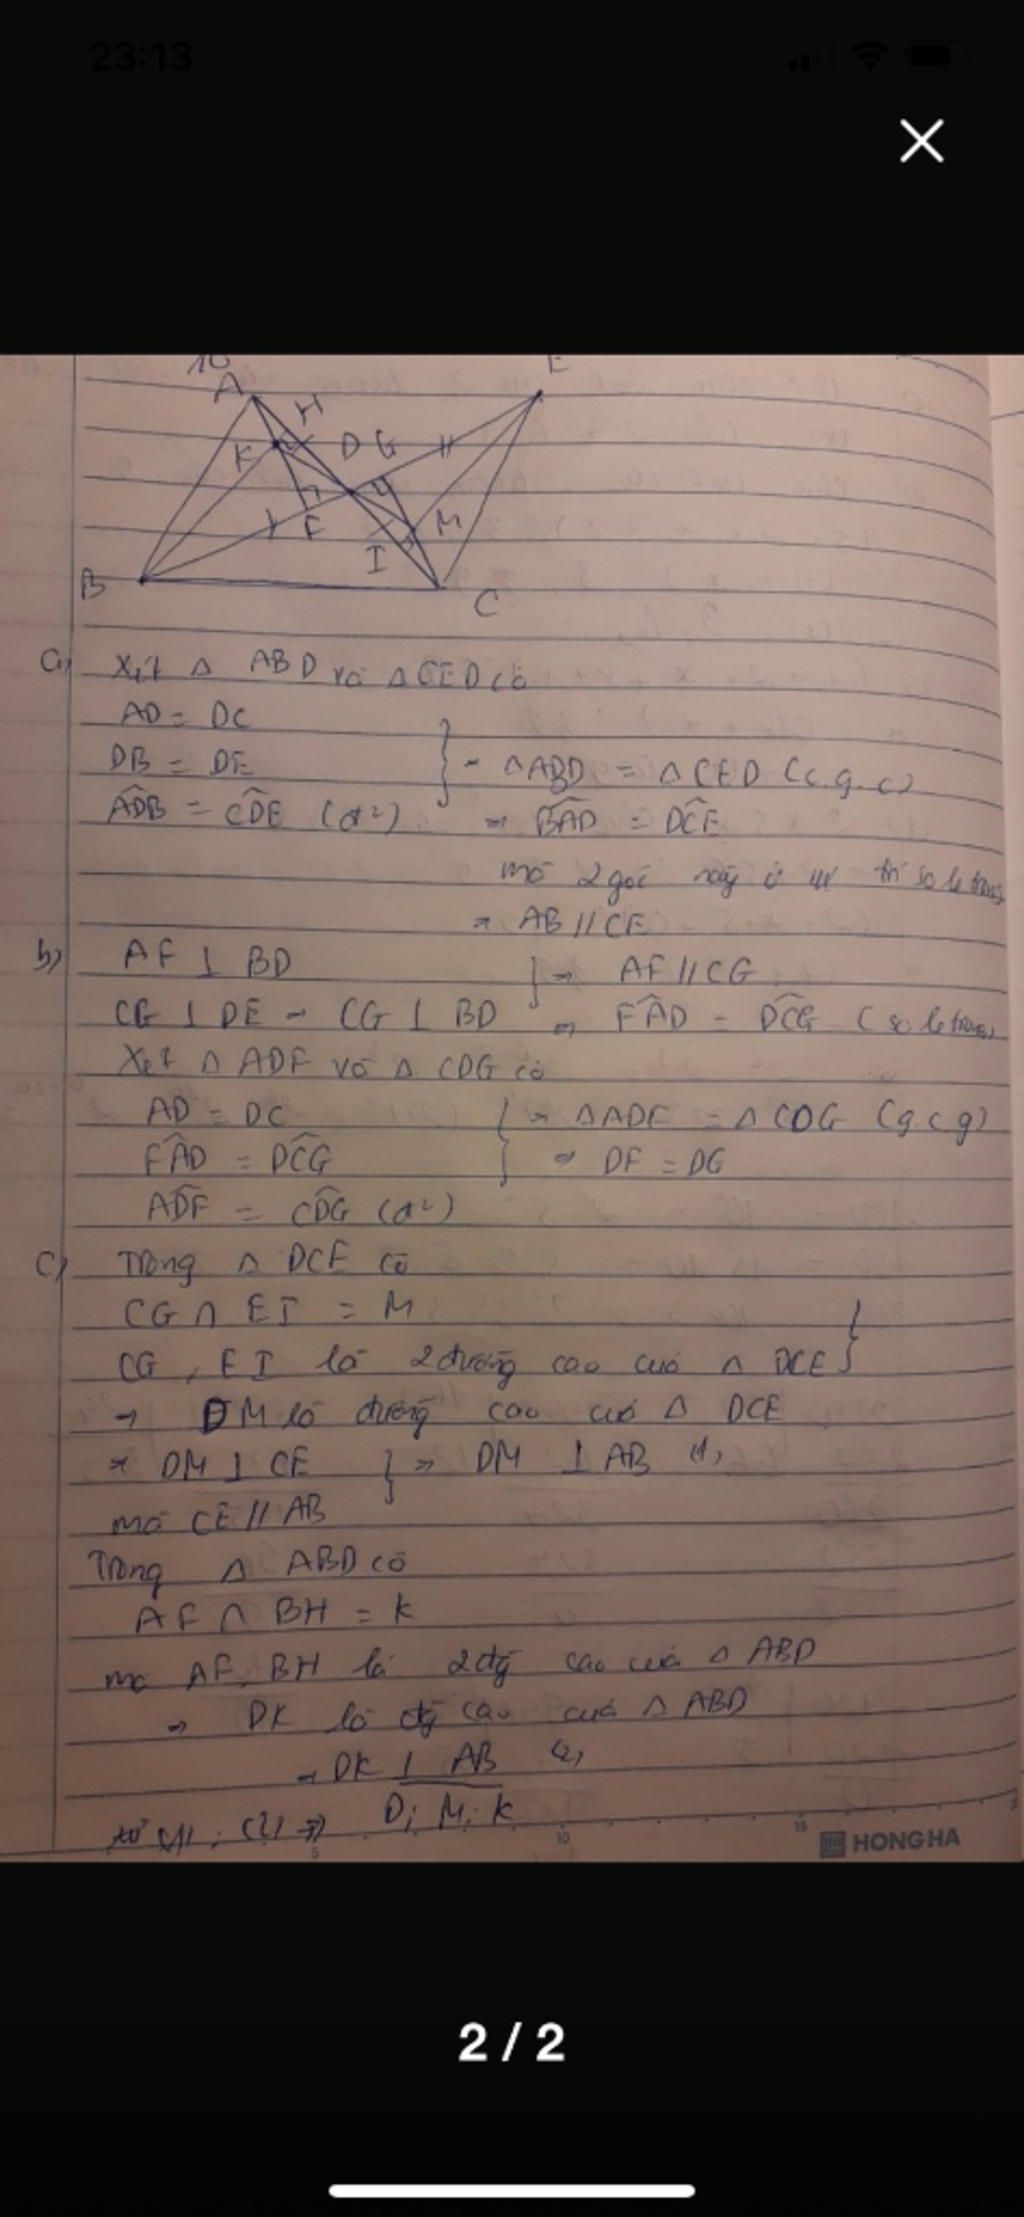 23:13
10
A H E
K D G
F M
I
B C
a) Xét Δ ABD và Δ CED có
AD = DC
DB = DE } → ΔABD = Δ CED (c.g.c)
ADB = CDE (đ²) ⇒ BAD = DCE
mà 2 góc này ở vị trí so le trong
⇒ AB // CE
b) AF ⊥ BD } ⇒ AF // CG
CG ⊥ DE → CG ⊥ BD ⇒ FAD = DCG (so le trong)
Xét Δ ADF và Δ CDG có
AD = DC } ⇒ ΔADF = Δ CDG (g.c.g)
FAD = DCG ⇒ DF = DG
ADF = CDG (đ²)
c) Trong Δ DCE có
CG ∩ EI = M }
CG, EI là 2 đường cao của Δ DCE
→ DM là đường cao của Δ DCE
⇒ DM ⊥ CE } ⇒ DM ⊥ AB (1)
mà CE // AB
Trong Δ ABD có
AF ∩ BH = K
mà AF, BH là 2 đg cao của Δ ABD
⇒ DK là đg cao của Δ ABD
→ DK ⊥ AB (2)
từ (1), (2) ⇒ D; M; K
5 10 15
HONG HA
2 / 2